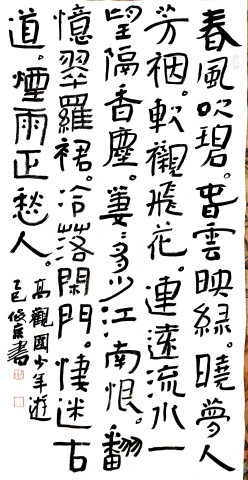 春風吹碧。春雲映緑。曉夢入
芳裀。軟襯飛花。連遠流水一
望隔香塵。萋〻多少江南恨。翻
憶翠羅裙。冷落閑門。悽迷古
道。煙雨正愁人。
高觀國少年游
乙巳 書